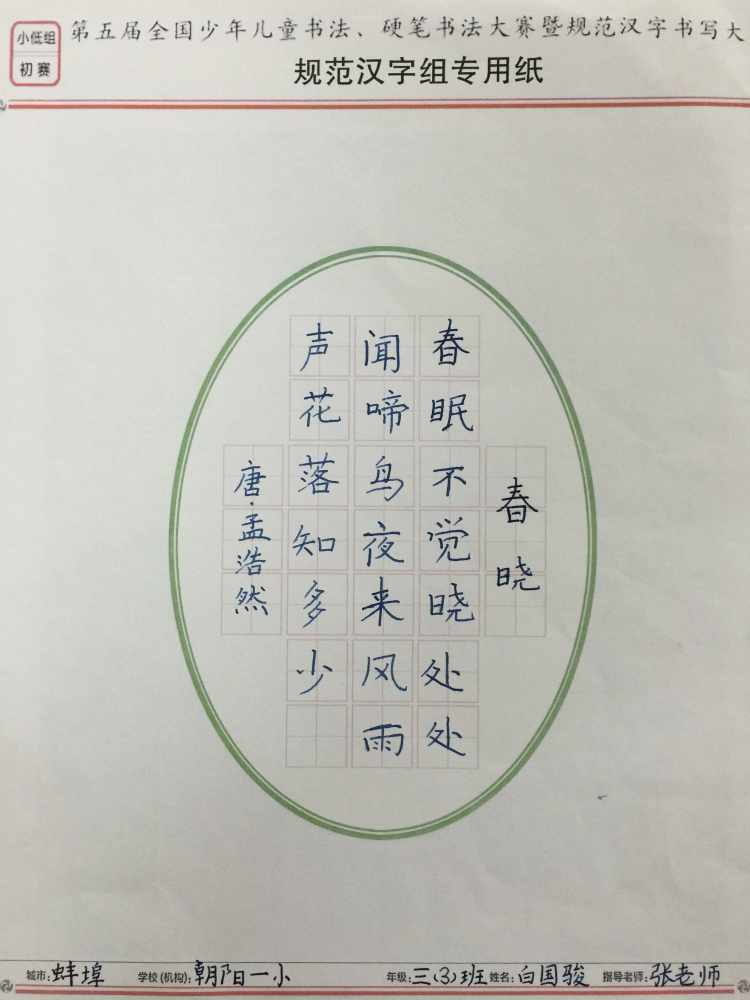 小低组
初赛
第五届全国少年儿童书法、硬笔书法大赛暨规范汉字书写大
规范汉字组专用纸
春晓
春眠不觉晓处处
闻啼鸟夜来风雨
声花落知多少
唐·孟浩然
城市:蚌埠 学校(机构):朝阳一小 年级:三(3)班 姓名:白国骏 指导老师:张老师